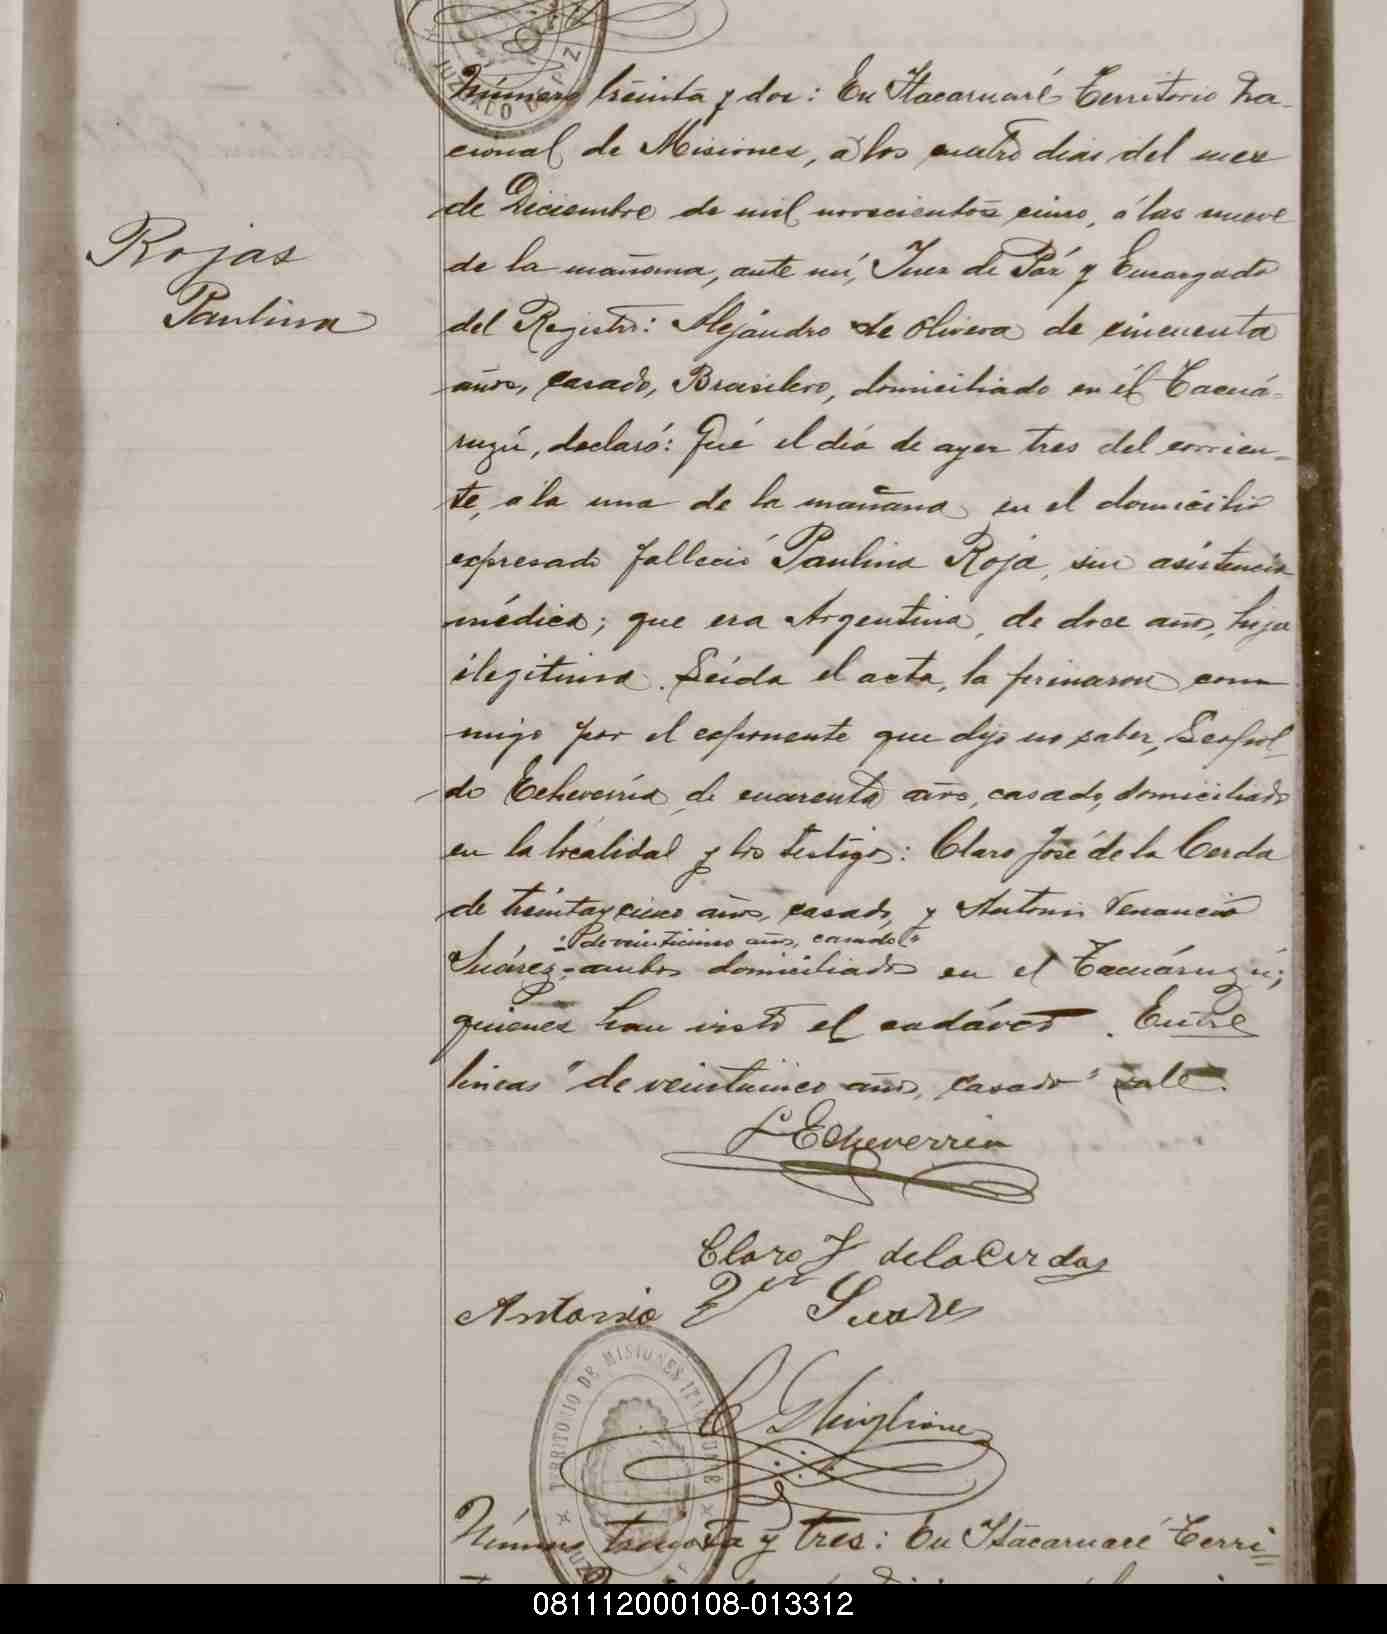 Número treinta y dos: En Itacaruaré Territorio Na-
cional de Misiones, á los cuatro dias del mes
de Diciembre de mil novecientos cinco, á las nueve
de la mañana, ante mí, Juez de Paz y Encargado
Rojas
Paulina
del Registro: Alejandro de Olivera de cincuenta
años, casado, Brasilero, domiciliado en el Tacuá-
ruzú, declaró: Qué el dia de ayer tres del corrien-
te, a la una de la mañana en el domicilio
expresado falleció Paulina Roja, sin asistencia
médica; que era Argentina, de doce años, hija
ilegitima. Leida el acta, la firmaron con-
migo por el exponente que dijo no saber, Leopol-
do Echeverría, de cuarenta años, casado, domiciliado
en la localidad y los testigos: Claro José de la Cerda
de treinta y cinco años, casado, y Antonio Venancio
"de veinticinco años, casado"
Suárez, ambos domiciliados en el Tacuáruzú;
quienes han visto el cadáver. Entre
lineas "de veinticinco años, casado" vale.
L Echeverria
Claro J de la Cerda
Antonio Suares
C Ghiglione
TERRITORIO DE MISIONES
Número treinta y tres: En Itacaruaré Terri-
081112000108-013312